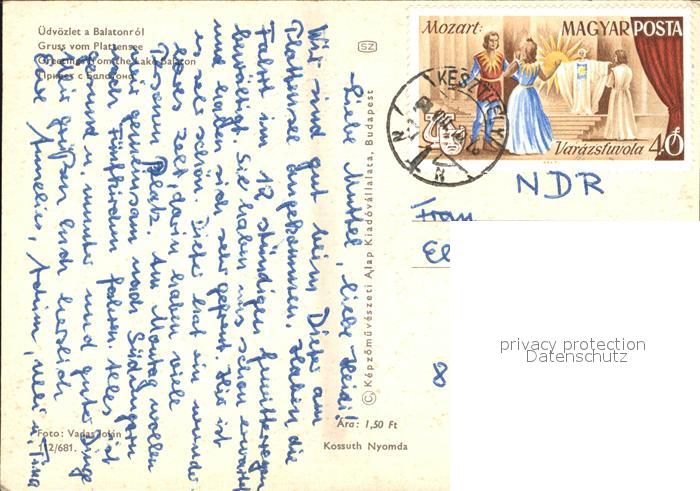 Üdvözlet a Balatonról
Gruss vom Plattensee
Greetings from the Lake Balaton
Привет с Балатона
SZ
Mozart:
MAGYAR POSTA
Varázsfuvola
40 f
KESZTHELY
NDR
Frau
El
8
privacy protection
Datenschutz
Liebe Muttel, liebe Heidi!
Wir sind gut beim Dieter am
Plattensee angekommen. Haben die
Fahrt im 12 stündigen
bewältigt. Sie haben uns schon erwartet
und haben sich sehr gefreut. Hier ist
es sehr schön. Dieter hat ein wunder-
bares Zelt, darin haben viele
Personen Platz. Am Montag wollen
wir gemeinsam nach Südungarn
nach fahren. Alles ist
gesund u. munter und guter Dinge
Wir grüßen Euch herzlich
Eure Annelies, Achim, u.
Foto: Vadas
112/681.
© Képzőművészeti Alap Kiadóvállalata, Budapest
Ára: 1,50 Ft
Kossuth Nyomda